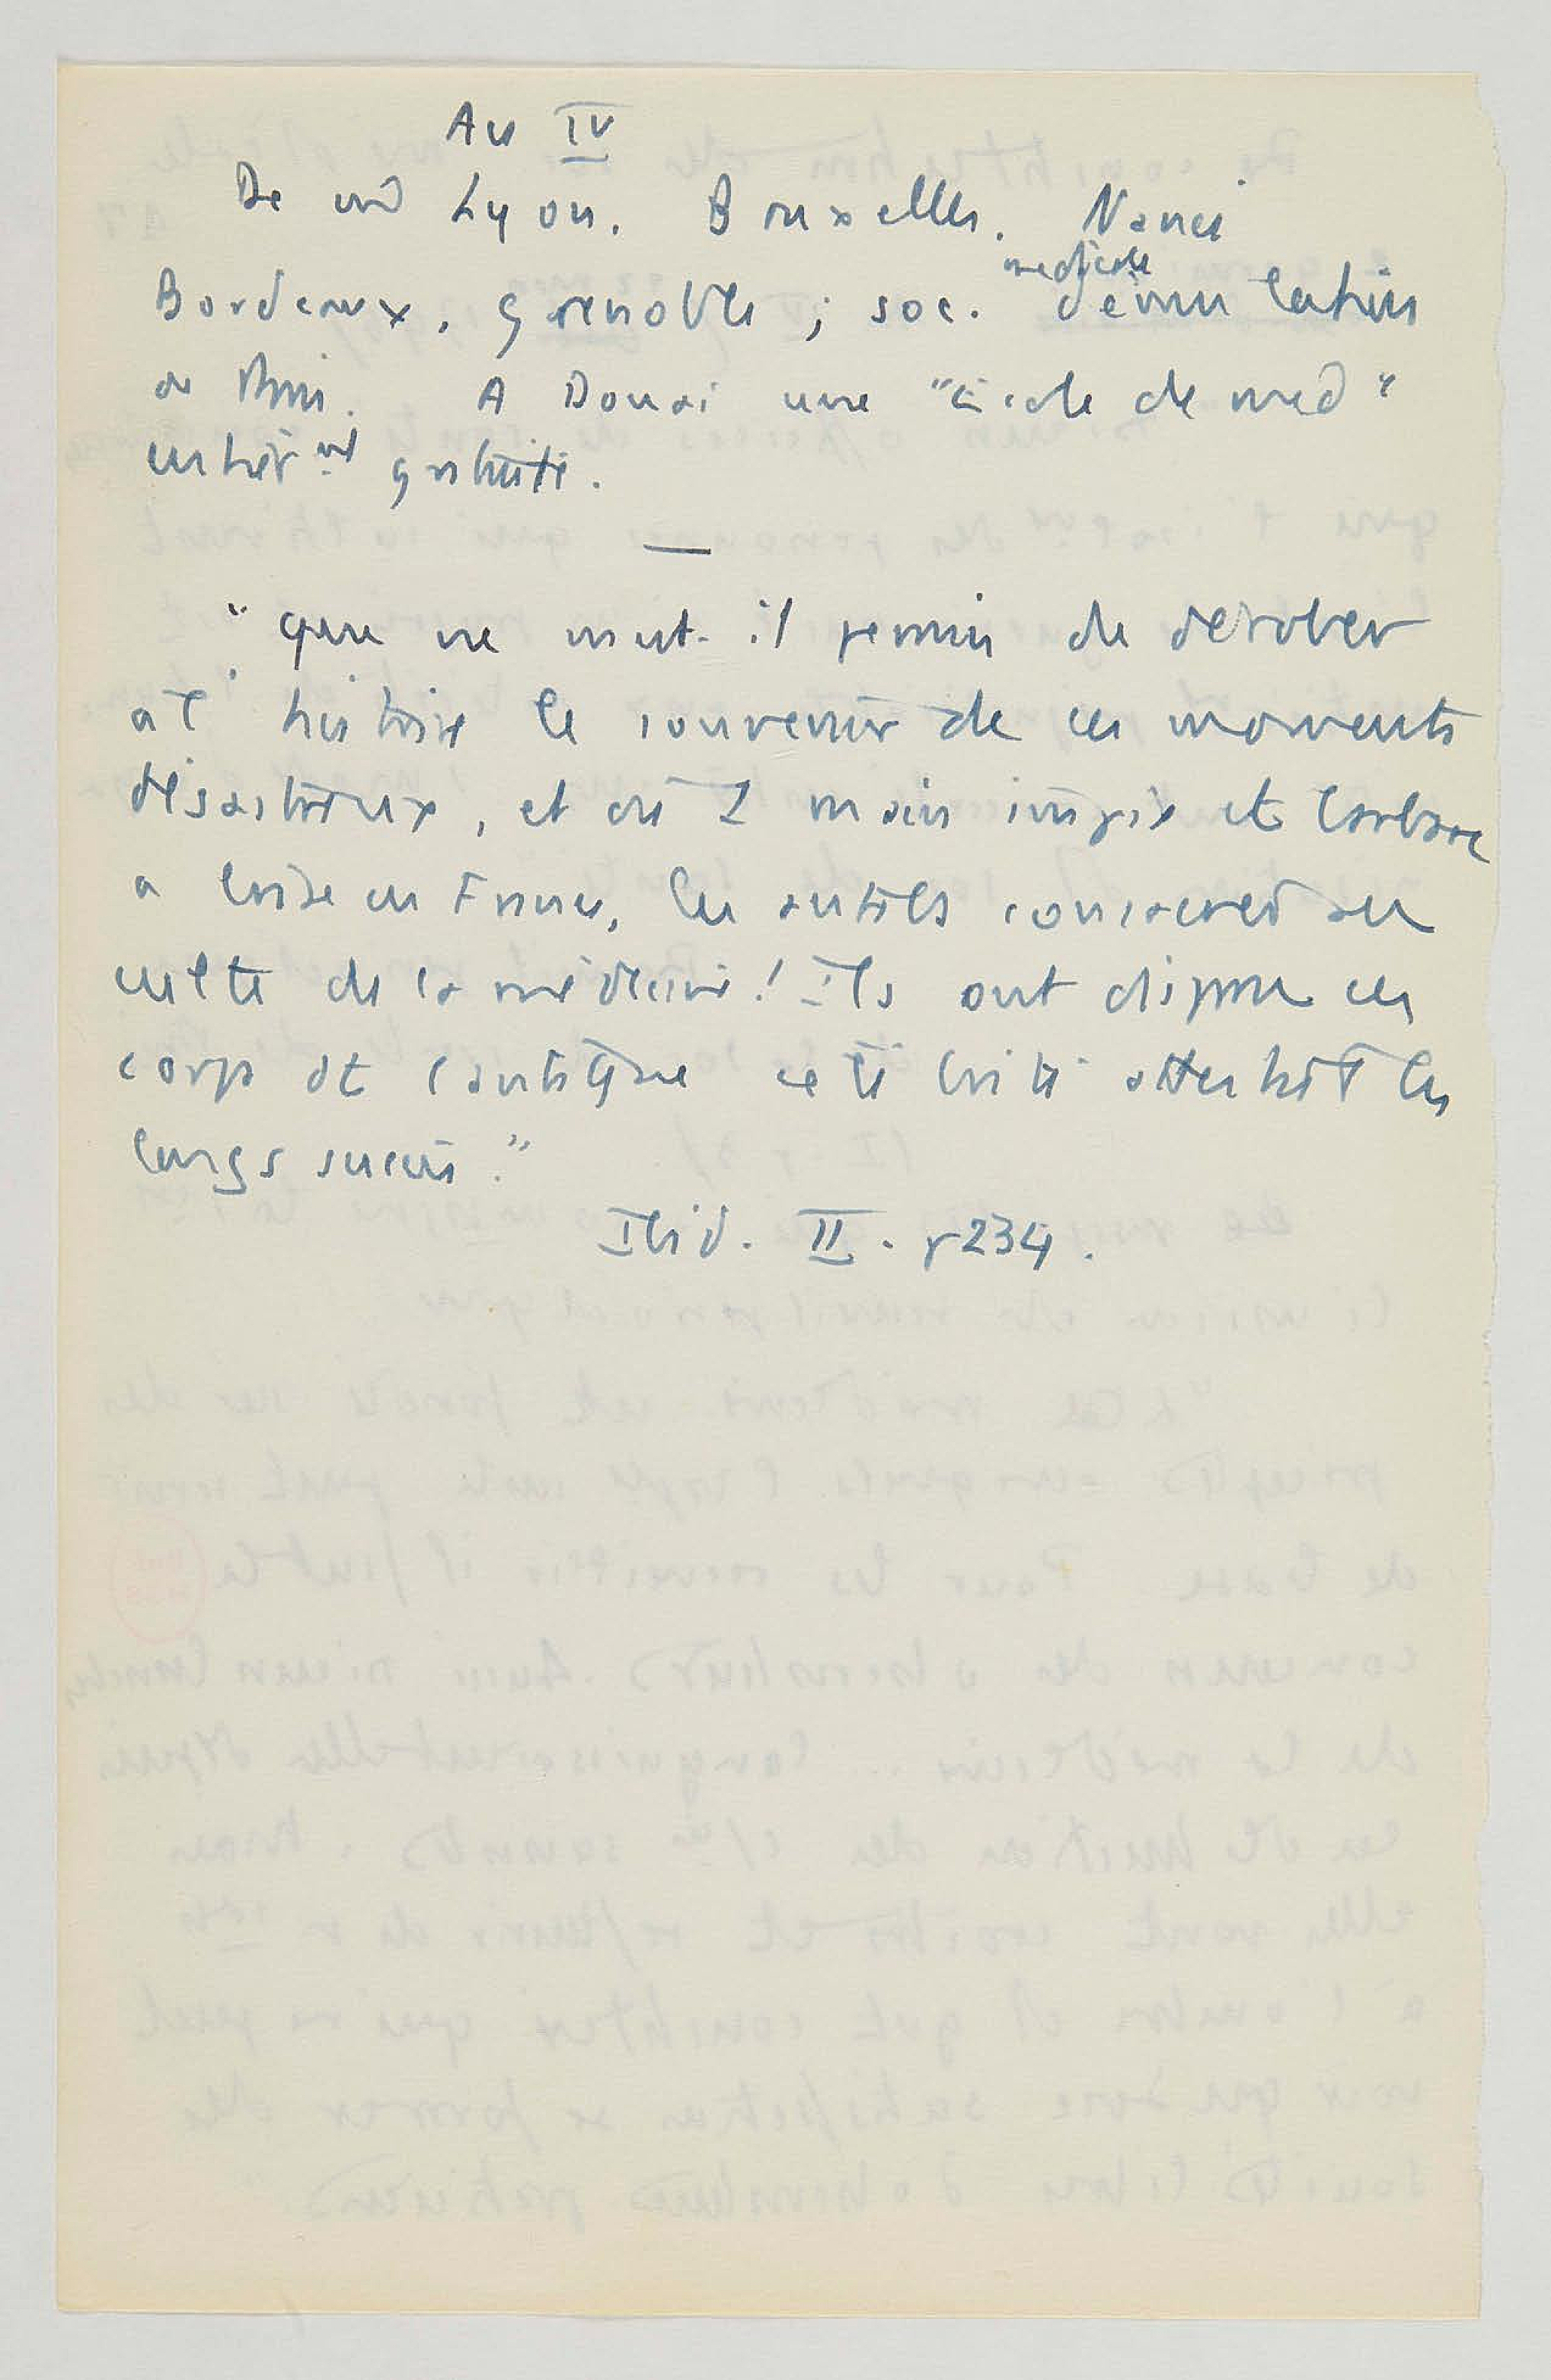 An IV
De md Lyon. Bruxelles. Nanci
medicale
Bordeaux, Grenoble ; soc. d'émulation
de Paris. A Douai une "Ecole de med"
entièrmt gratuite.
—
"que ne m'est-il permis de dérober
à l'histoire le souvenir de ces moments
désastreux, et où 1 main impie et barbare
a brisé en France, les autels consacrés au
culte de la médecine! Ils ont disparu ces
corps dt l'antique célébrité attestait les
longs succès."
Ibid. II. p 234.